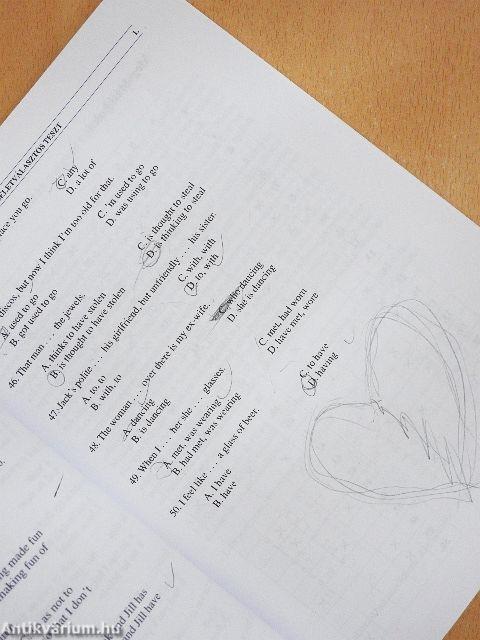 I.
FELETVÁLASZTÓS TESZT
ace you go.
C. any
D. a lot of
discos, but now I think I'm too old for that.
A. used to go
B. got used to go
C. 'm used to go
D. was using to go
46. That man . . . the jewels.
A. thinks to have stolen
B. is thought to have stolen
C. is thought to steal
D. is thinking to steal
47. Jack's polite . . . his girlfriend, but unfriendly . . . his sister.
A. to, to
B. with, to
C. with, with
D. to, with
48. The woman . . . over there is my ex-wife.
A. dancing
B. is dancing
C. who dancing
D. she is dancing
49. When I . . . her she . . . glasses.
A. met, was wearing
B. had met, was wearing
C. met, had worn
D. have met, wore
50. I feel like . . . a glass of beer.
A. I have
B. have
C. to have
D. having
ng made fun
making fun of
as not to
at I don't
nd Jill has
nd Jill have
Antikvárium.hu